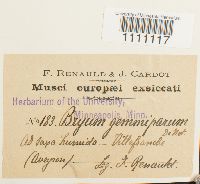 1111117
F. RENAULD & J. CARDOT
Musci europei exsiccati
Herbarium of the University,
Minneapolis, Minn.
No 183. Bryum gemmiparum
De Not
Ad saxa humida — Villefranche
(Aveyron) Lg. F. Renauld